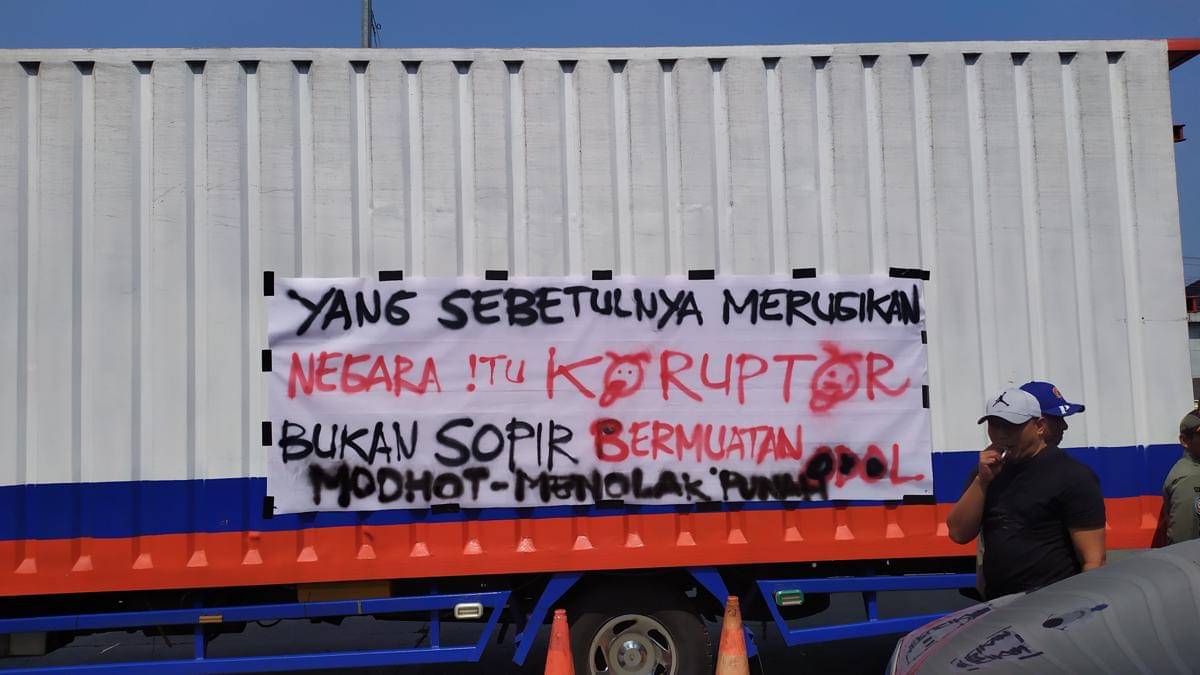 YANG SEBETULNYA MERUGIKAN
NEGARA ITU KORUPTOR
BUKAN SOPIR BERMUATAN
ODOL
MODHOT-MENOLAK PUNAH